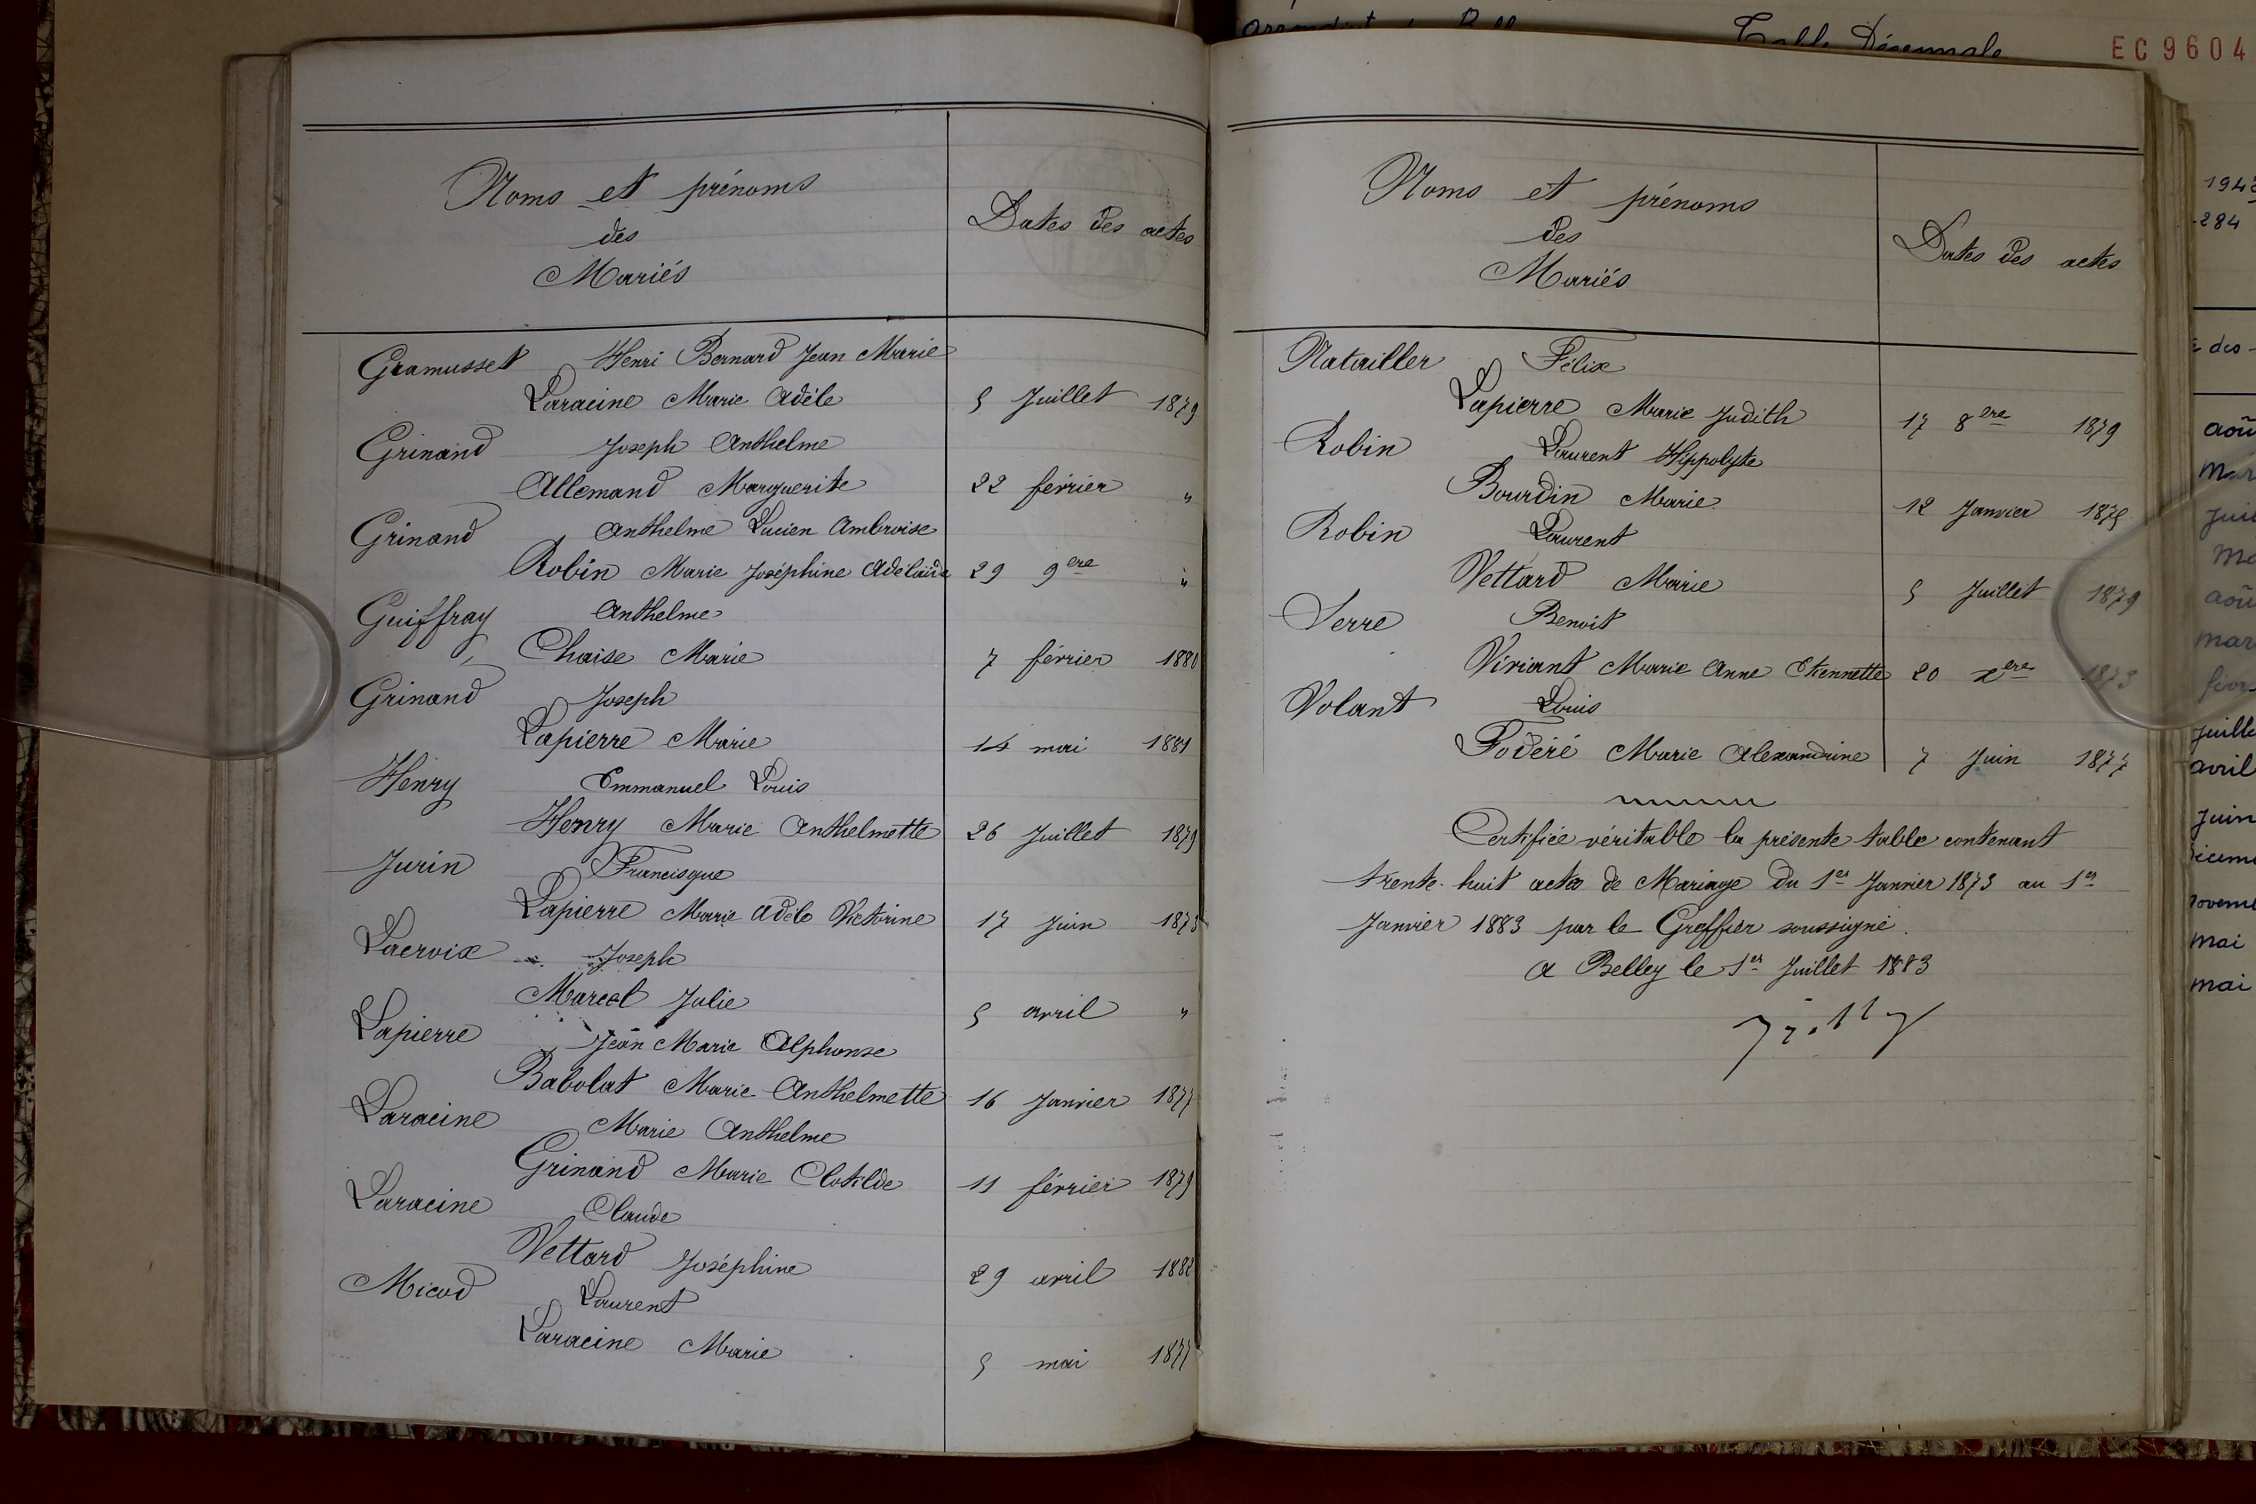 Noms et prénoms
des
Mariés
Dates des actes
Gramusset Henri Bernard Jean Marie
Laracine Marie Adèle 5 Juillet 1879
Grinand Joseph Anthelme
Allemand Marguerite 22 février "
Grinand Anthelme Lucien Ambroise
Robin Marie Joséphine Adélaïde 29 9ere "
Guiffray Anthelme
Chaise Marie 7 février 1880
Grinand Joseph
Lapierre Marie 14 mai 1881
Henry Emmanuel Louis
Henry Marie Anthelmette 26 Juillet 1879
Jurin Francisque
Lapierre Marie Adèle Victorine 17 Juin 1873
Lacroix Joseph
Marcel Julie 5 avril "
Lapierre Jean Marie Alphonse
Babolat Marie Anthelmette 16 Janvier 1877
Laracine Marie Anthelme
Grinand Marie Clotilde 11 février 1879
Laracine Claude
Vettard Joséphine 29 avril 1882
Micod Laurent
Laracine Marie 5 mai 1877
Noms et prénoms
des
Mariés
Dates des actes
Natailler Félix
Lapierre Marie Judith 17 8ere 1879
Robin Laurent Hippolyte
Bourdin Marie 12 Janvier 1875
Robin Laurent
Vettard Marie 5 Juillet 1879
Serre Benoit
Viriant Marie Anne Etiennette 20 xere 1873
Volant Louis
Fodéré Marie Alexandrine 7 Juin 1877
Certifiée véritable la présente table contenant
trente-huit actes de Mariage du 1er Janvier 1873 au 1er
Janvier 1883 par le Greffier soussigné.
A Belley le 1er Juillet 1883
Table Décennale
EC 9604
194
284
des
aoû
Mar
juil
Ma
aoû
mar
juille
avril
juin
mai
mai